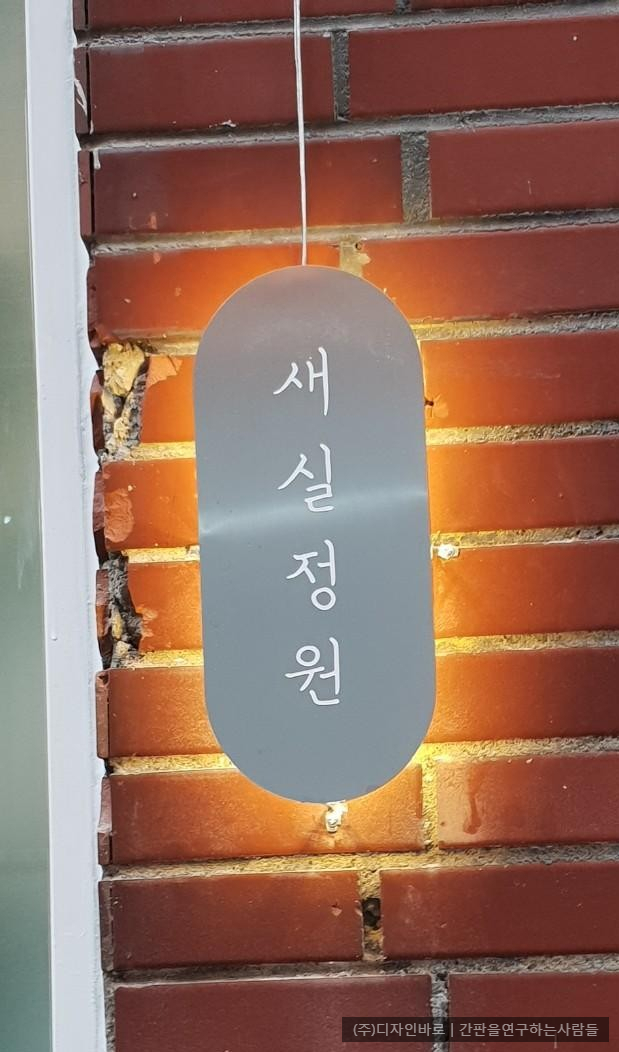 새
실
정
원
(주)디자인바로 | 간판을연구하는사람들